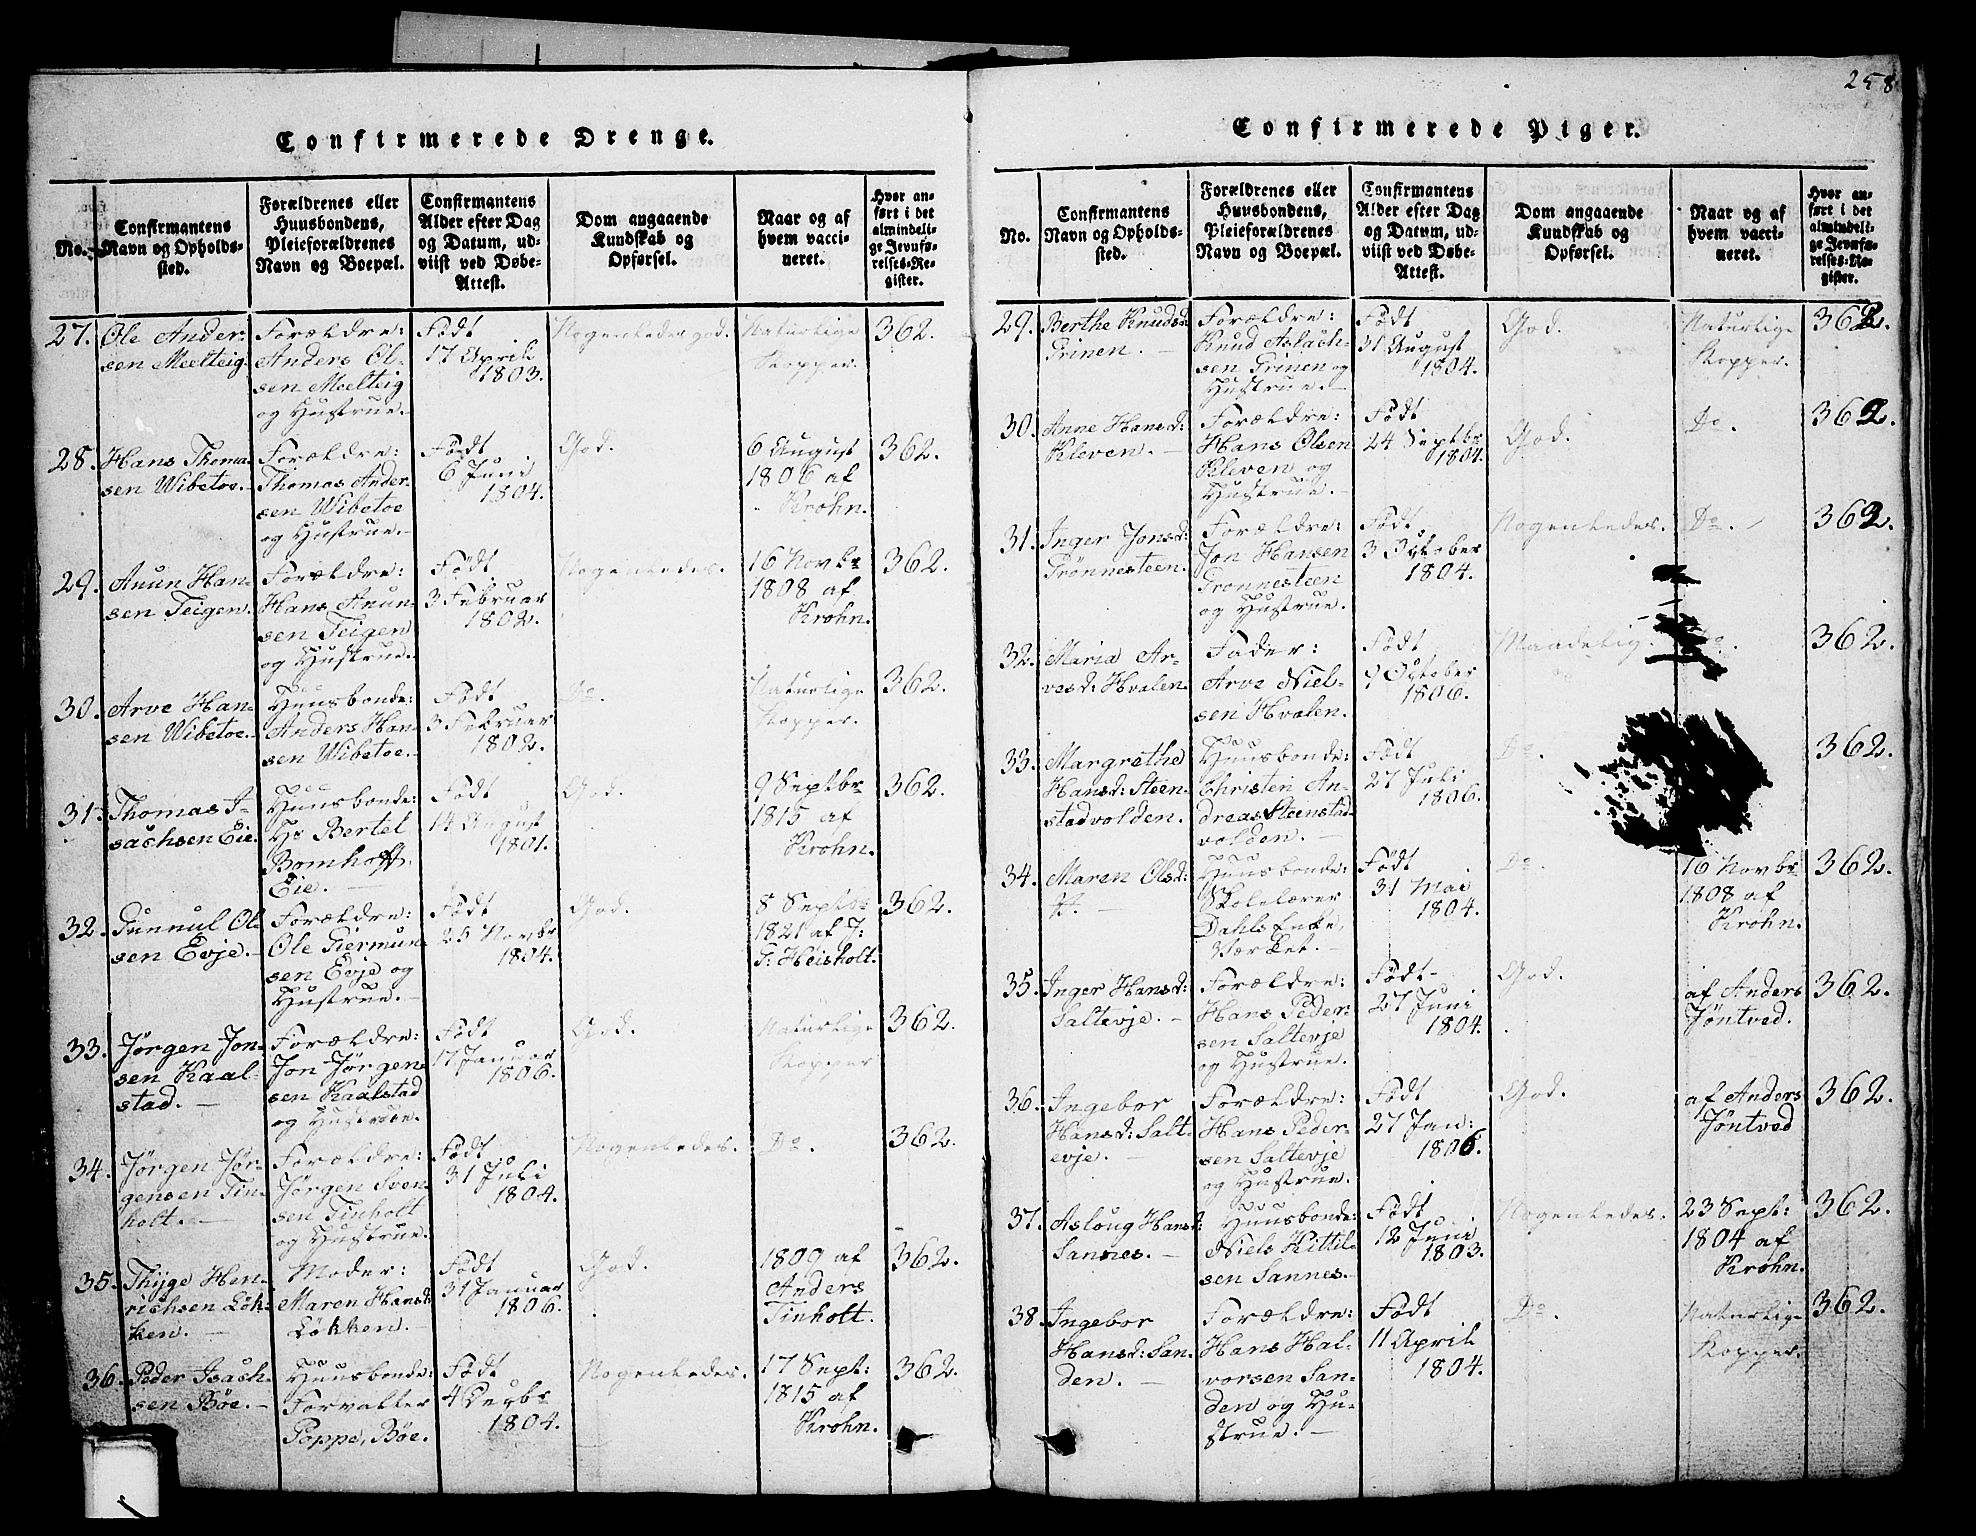 258
Confirmerede Drenge.
No.
Confirmantens
Navn og Opholds-
sted.
Forældrenes eller
Huusbondens,
Pleieforældrenes
Navn og Boepæl.
Confirmantens
Alder efter Dag
og Datum, ud-
viist ved Døbe-
Attest.
Dom angaaende
Kundskab og
Opførsel.
Naar og af
hvem vacci-
neret.
Hvor an-
ført i det
almindeli-
ge Jevnfø-
relses-Re-
gister.
27.
Ole Ander-
sen Meelteig.
Forældre:
Anders Ol-
sen Meelteig
og Hustrue.
Født
17 April
1803.
Nogenledes god.
Naturlige
Kopper.
362.
28.
Hans Thoma-
sen Wibetoe.
Forældre:
Thomas Ander-
sen Wibetoe
og Hustrue.
Født
6 Juni
1804.
God.
6 August
1806 af
Krohn.
362.
29.
Anun Han-
sen Teigen.
Forældre:
Hans Anun-
sen Teigen
og Hustrue.
Født
3 Februar
1802.
Nogenledes.
16 Novbr
1808 af
Krohn.
362.
30.
Arve Han-
sen Wibetoe.
Huusbonde:
Anders Han-
sen Wibetoe.
Født
3 Februar
1802.
Do.
Naturlige
Kopper.
362.
31.
Thomas I-
sachsen Eie.
Huusbonde:
Hr Bertel
Bomhoff.
Eie.
Født
14 August
1801.
God.
9 Septbr
1815 af
Krohn.
362.
32.
Gunnul Ol-
sen Evje.
Forældre:
Ole Giermun-
sen Evje og
Hustrue.
Født
25 Novbr
1804.
God.
8 Septbr
1821 af J:
G: Heisholt.
362.
33.
Jørgen Jon-
sen Kaal-
stad.
Forældre:
Jon Jørgen-
sen Kaalstad
og Hustrue.
Født
17 Januar
1806.
God.
Naturlige
Kopper
362.
34.
Jørgen Jør-
gensen Tin-
holt.
Forældre:
Jørgen Sven-
sen Tinholt
og Hustrue.
Født
31 Juli
1804.
Nogenledes.
Do.
362.
35.
Thyge Hen-
richsen Løk-
ken.
Moder:
Maren Hansd:
Løkken.
Født
31 Januar
1806.
God.
1809 af
Anders
Tinholt.
362.
36.
Peder Isach-
sen Bøe.
Huusbonde:
Forvalter
Poppe, Bøe.
Født
4 Decbr
1804.
Nogenledes.
17 Sept:
1815 af
Krohn.
362.
Confirmerede Piger.
No.
Confirmantens
Navn og Opholds-
sted.
Forældrenes eller
Huusbondens,
Pleieforældrenes
Navn og Boepæl.
Confirmantens
Alder efter Dag
og Datum, ud-
viist ved Døbe-
Attest.
Dom angaaende
Kundskab og
Opførsel.
Naar og af
hvem vacci-
neret.
Hvor an-
ført i det
almindeli-
ge Jevnfø-
relses-Re-
gister.
29.
Berthe Knudsd:
Grinen.
Forældre:
Knud Aslach-
sen Grinen og
Hustrue.
Født
31 August
1804.
God.
Naturlige
Kopper.
362.
30.
Anne Hansd:
Kleven.
Forældre:
Hans Olsen
Kleven og
Hustrue.
Født
24 Septbr
1804.
God.
Do.
362.
31.
Inger Jonsd:
Grønnesteen.
Forældre:
Jon Hansen
Grønnesteen
og Hustrue.
Født
3 October
1804.
Nogenledes.
Do.
362.
32.
Maria Ar-
vesd: Hvalen.
Fader:
Arve Niel-
sen Hvalen.
Født
9 October
1806.
Maadelig.
362.
33.
Margrethe
Hansd: Steen-
stadvolden.
Huusbonde:
Christen An-
dreas Steenstad-
volden.
Født
27 Juli
1806.
Do.
362.
34.
Maren Olsd:
Huusbonde:
Skolelærer
Dahls Enke,
Værket.
Født
31 Mai
1804.
Do.
16 Novbr
1808 af
Krohn.
362.
35.
Inger Hansd:
Saltevje.
Forældre:
Hans Peder-
sen Saltevje
og Hustrue.
Født
27 Juni
1804.
God.
af Anders
Jøntved.
362.
36.
Ingebor
Hansd: Salt-
evje.
Forældre:
Hans Peder-
sen Saltevje
og Hustrue.
Født
27 Jan:
1806.
God.
af Anders
Jøntved
362.
37.
Asloug Hansd:
Sannes.
Huusbonde:
Niels Kittil-
sen Sannes.
Født
12 Juni
1803.
Nogenledes.
23 Sept:
1804 af
Krohn.
362.
38.
Ingebor
Hansd: San-
den.
Forældre:
Hans Hal-
vorsen San-
den og Hu-
strue.
Født
11 April
1804.
Do.
Naturlige
Kopper.
362.